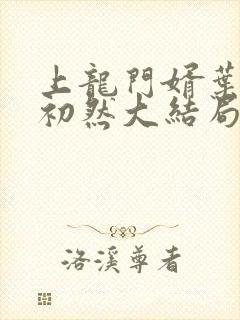 上龍門婿葉
初然大結局
洛溪尊者